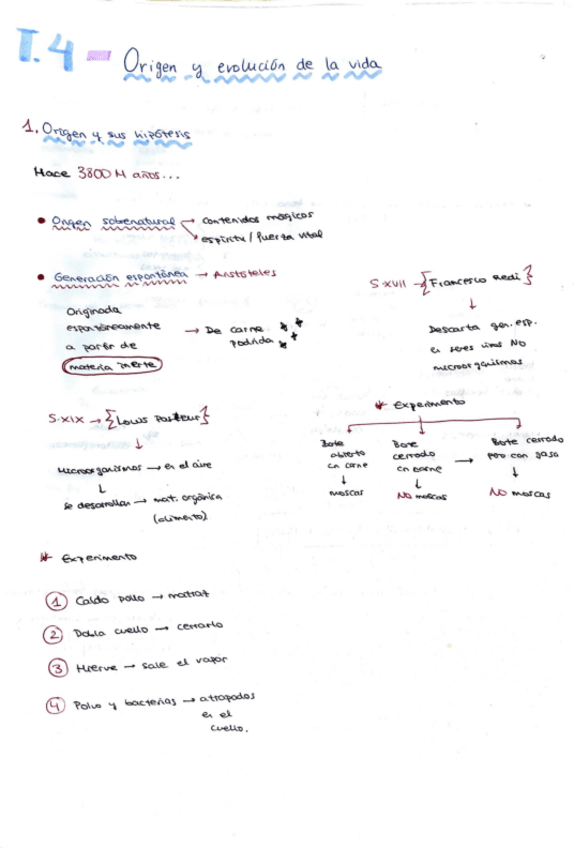 T.4 - Origen y evolución de la vida
1. Origen y sus hipótesis
Hace 3800 M años...
• Origen sobrenatural → contenidos mágicos
→ espíritu / fuerza vital
• Generación espontánea → Aristóteles
Originada
espontáneamente → De carne
a partir de podrida
materia inerte
S.XVII → {Francesco Redi}
↓
Descarta gen. esp.
en seres vivos NO
microorganismos
* Experimento
Bote
abierto
cn carne
↓
moscas
Bote
cerrado
cn carne →
↓
NO moscas
Bote cerrado
pero con gasa
↓
NO moscas
S.XIX → {Louis Pasteur}
↓
Microorganismos → en el aire
↓
se desarrollan → mat. orgánica
(alimento)
* Experimento
1 Caldo pollo → matraz
2 Dobla cuello → cerrarlo
3 Hierve → sale el vapor
4 Polvo y bacterias → atrapados
en el
cuello.